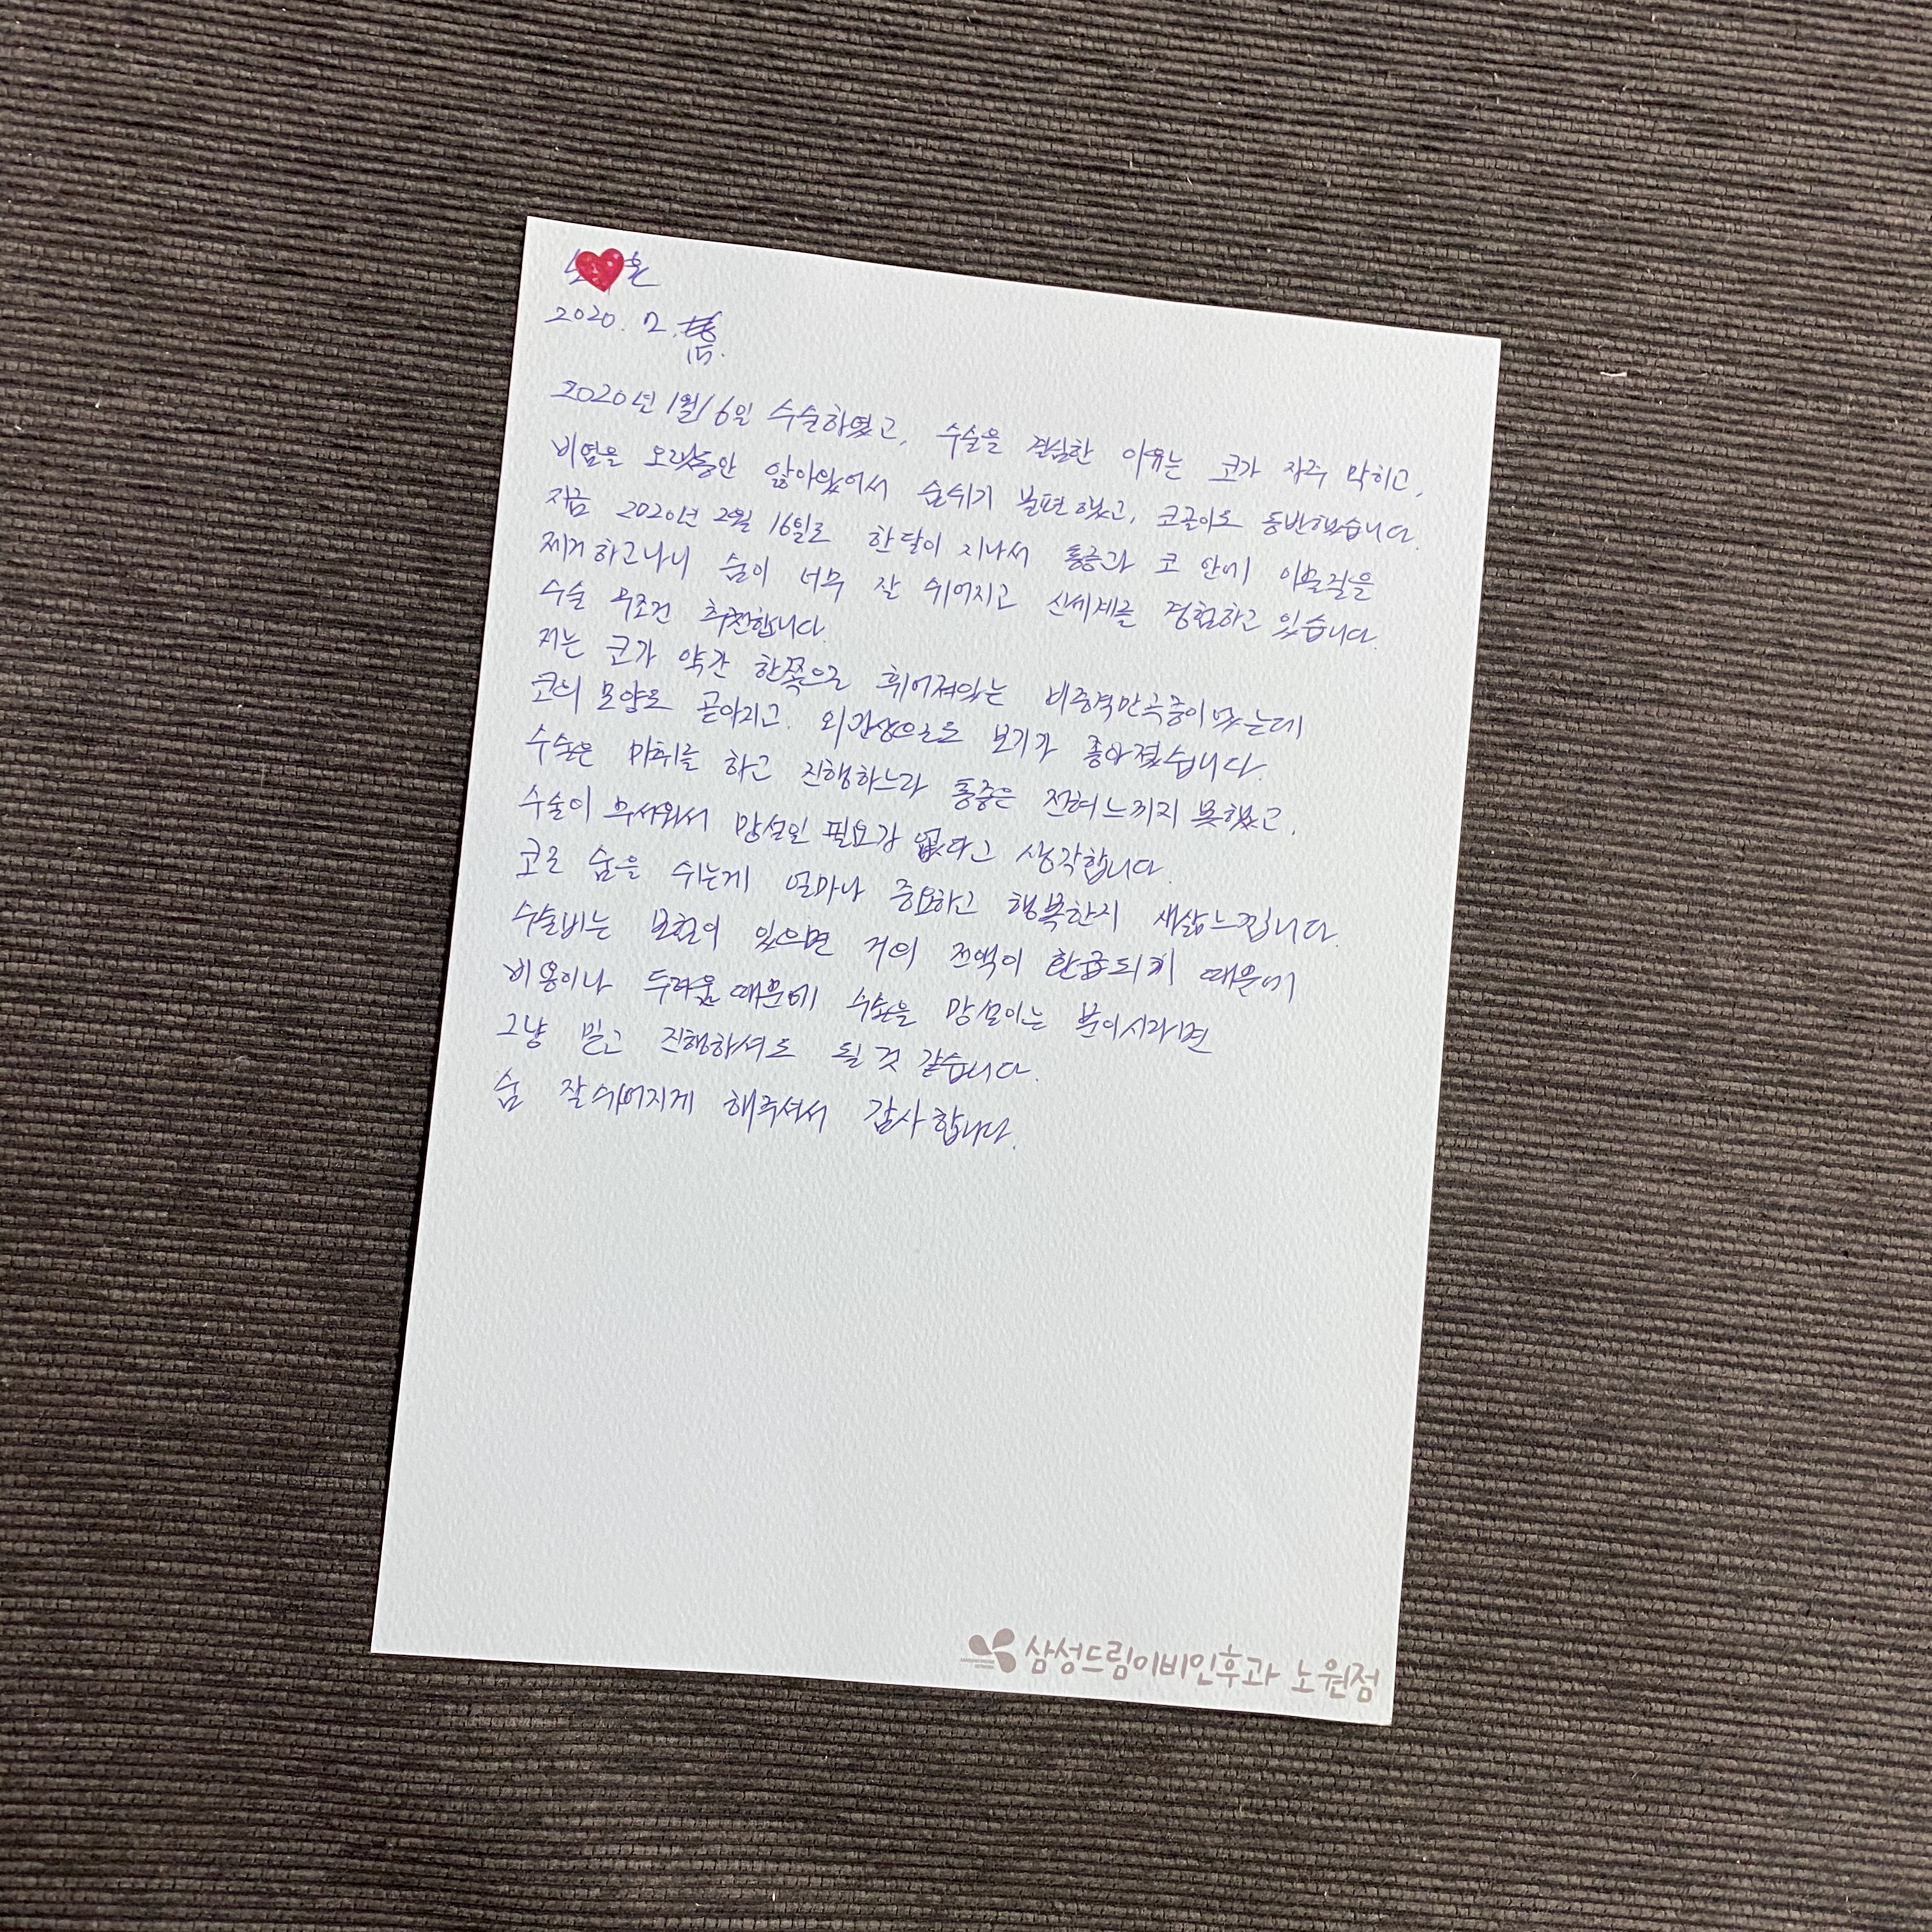 2020. 2. 15.
2020년 1월 16일 수술하였고, 수술을 결심한 이유는 코가 자주 막히고,
비염을 오랫동안 앓아왔어서 숨쉬기 불편했고, 코골이도 동반했습니다.
지금 2020년 2월 16일로 한달이 지나서 통증과 코 안에 이물질을
제거하고나니 숨이 너무 잘 쉬어지고 신세계를 경험하고 있습니다.
수술 무조건 추천합니다.
저는 코가 약간 한쪽으로 휘어져있는 비중격만곡증이었는데
코의 모양도 곧아지고. 외관상으로도 보기가 좋아졌습니다.
수술은 마취를 하고 진행하느라 통증은 전혀 느끼지 못했고,
수술이 무서워서 망설일 필요가 없다고 생각합니다.
코로 숨을 쉬는게 얼마나 중요하고 행복한지 새삶느낍니다.
수술비는 보험이 있으면 거의 전액이 환급되기 때문에
비용이나 두려움 때문에 수술을 망설이는 분이시라면
그냥 믿고 진행하셔도 될 것 같습니다.
숨 잘쉬어지게 해주셔서 감사합니다.
삼성드림이비인후과 노원점